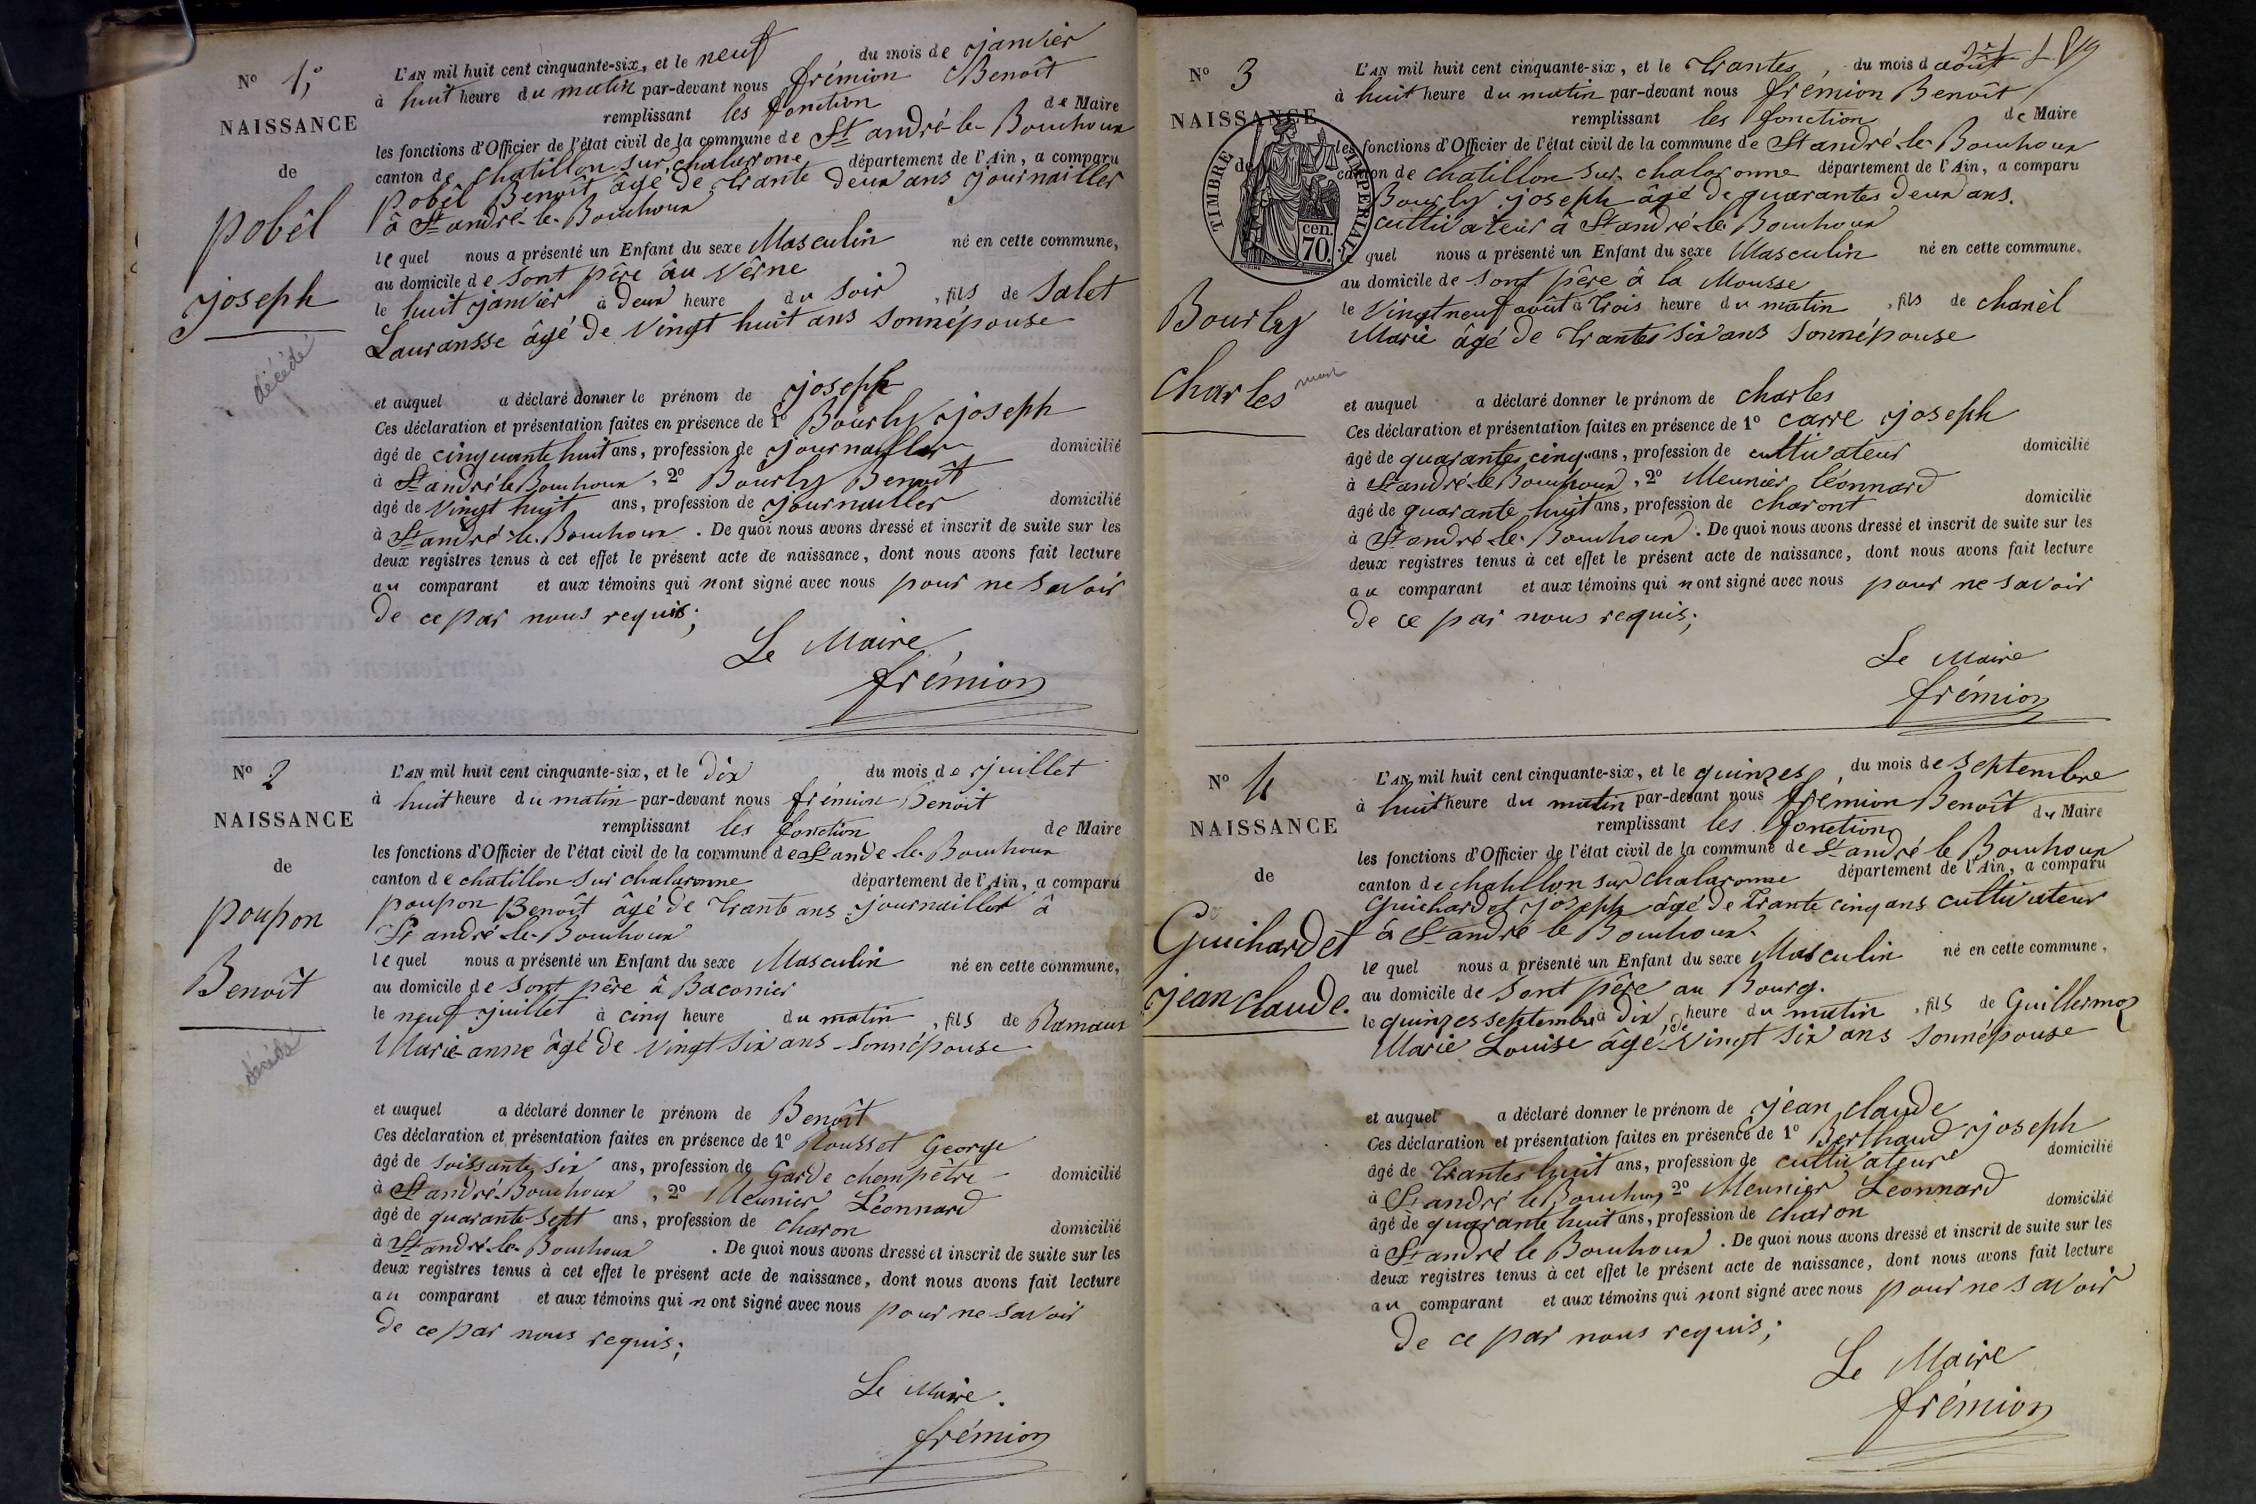 N° 1,°
NAISSANCE
de
pobêl
joseph
décédé
L'AN mil huit cent cinquante-six, et le neuf du mois de janvier
à huit heure du matin par-devant nous frémion Benoît
remplissant les fonction de Maire
les fonctions d'Officier de l'état civil de la commune de St andré-le-Bouchoux
canton de chatillon sur chalaronne département de l'Ain, a comparu
Pobêl Benoît âgé de trante deux ans journailler
à St andré-le-Bouchoux
lequel nous a présenté un Enfant du sexe Masculin né en cette commune,
au domicile de sont père au Vêrne
le huit janvier à deux heure du soir, fils de Salet
Lauransse âgé de vingt huit ans sonnépouse
et auquel a déclaré donner le prénom de joseph
Ces déclaration et présentation faites en présence de 1° Bourly joseph
âgé de cinquante huit ans, profession de journailler domicilié
à St andré le Bouchoux, 2° Bourly Benoît
âgé de vingt huit ans, profession de journailler domicilié
à St andré-le-Bouchoux. De quoi nous avons dressé et inscrit de suite sur les
deux registres tenus à cet effet le présent acte de naissance, dont nous avons fait lecture
au comparant et aux témoins qui n ont signé avec nous pour ne savoir
de ce par nous requis;
Le Maire
frémion
N° 2
NAISSANCE
de
poupon
Benoît
décédé
L'AN mil huit cent cinquante-six, et le dix du mois de juillet
à huit heure du matin par-devant nous frémion Benoît
remplissant les fonction de Maire
les fonctions d'Officier de l'état civil de la commune de St ande-le-Bouchoux
canton de chatillon sur chalaronne département de l'Ain, a comparu
poupon Benoît âgé de trante ans journailler à
St andré-le-Bouchoux
lequel nous a présenté un Enfant du sexe Masculin né en cette commune,
au domicile de sont père à Baconier
le neuf juillet à cinq heure du matin, fils de Ramaux
Marie-anne âgé de vingt six ans sonnépouse
et auquel a déclaré donner le prénom de Benoît
Ces déclaration et présentation faites en présence de 1° Rousset George
âgé de soissante six ans, profession de Garde champêtre domicilié
à St andré Bouchoux, 2° Meunier Léonnard
âgé de quarante sept ans, profession de charon domicilié
à St andré-le-Bouchoux. De quoi nous avons dressé et inscrit de suite sur les
deux registres tenus à cet effet le présent acte de naissance, dont nous avons fait lecture
au comparant et aux témoins qui n ont signé avec nous pour ne savoir
de ce par nous requis;
Le Maire.
frémion
N° 3
NAISSANCE
de
TIMBRE IMPERIAL
70 cen.
Bourly
Charles
mort
L'AN mil huit cent cinquante-six, et le trantes, du mois d août
à huit heure du matin par-devant nous frémion Benoît
remplissant les fonction de Maire
les fonctions d'Officier de l'état civil de la commune de St andré-le-Bouchoux
canton de chatillon sur chalaronne département de l'Ain, a comparu
Bourly joseph âgé de quarantes deux ans.
cultivateur à St andré-le-Bouchoux
le quel nous a présenté un Enfant du sexe Masculin né en cette commune,
au domicile de sont père à la Mousse
le vingt neuf août à trois heure du matin, fils de chanêl
Marie âgé de trantes six ans sonnépouse
et auquel a déclaré donner le prénom de charles
Ces déclaration et présentation faites en présence de 1° carre joseph
âgé de quarantes cinq ans, profession de cultivateur domicilié
à St andré-le-Bouchoux, 2° Meunier léonnard
âgé de quarante huit ans, profession de charont domicilié
à St andré-le-Bouchoux. De quoi nous avons dressé et inscrit de suite sur les
deux registres tenus à cet effet le présent acte de naissance, dont nous avons fait lecture
au comparant et aux témoins qui n ont signé avec nous pour ne savoir
de ce par nous requis;
Le Maire
frémion
N° 4
NAISSANCE
de
Guichardet
jean claude.
L'AN mil huit cent cinquante-six, et le quinzes, du mois de septembre
à huit heure du matin par-devant nous frémion Benoît
remplissant les fonction du Maire
les fonctions d'Officier de l'état civil de la commune de St andré le Bouchoux
canton de chatillon sur chalaronne département de l'Ain, a comparu
Guichardet joseph âgé de trante cinq ans cultivateur
à St andré le Bouchoux.
le quel nous a présenté un Enfant du sexe Masculin né en cette commune,
au domicile de sont père au Bourg.
le quinzes septembre à dix heure du matin, fils de Guillermoz
Marie Louise âgé de vingt six ans sonnépouse
et auquel a déclaré donner le prénom de jean claude
Ces déclaration et présentation faites en présence de 1° Berthaud joseph
âgé de trantes huit ans, profession de cultivateur domicilié
à St andré le Bouchoux 2° Meunier Léonnard
âgé de quarante huit ans, profession de charon domicilié
à St andré le Bouchoux. De quoi nous avons dressé et inscrit de suite sur les
deux registres tenus à cet effet le présent acte de naissance, dont nous avons fait lecture
au comparant et aux témoins qui n ont signé avec nous pour ne savoir
de ce par nous requis;
Le Maire
frémion